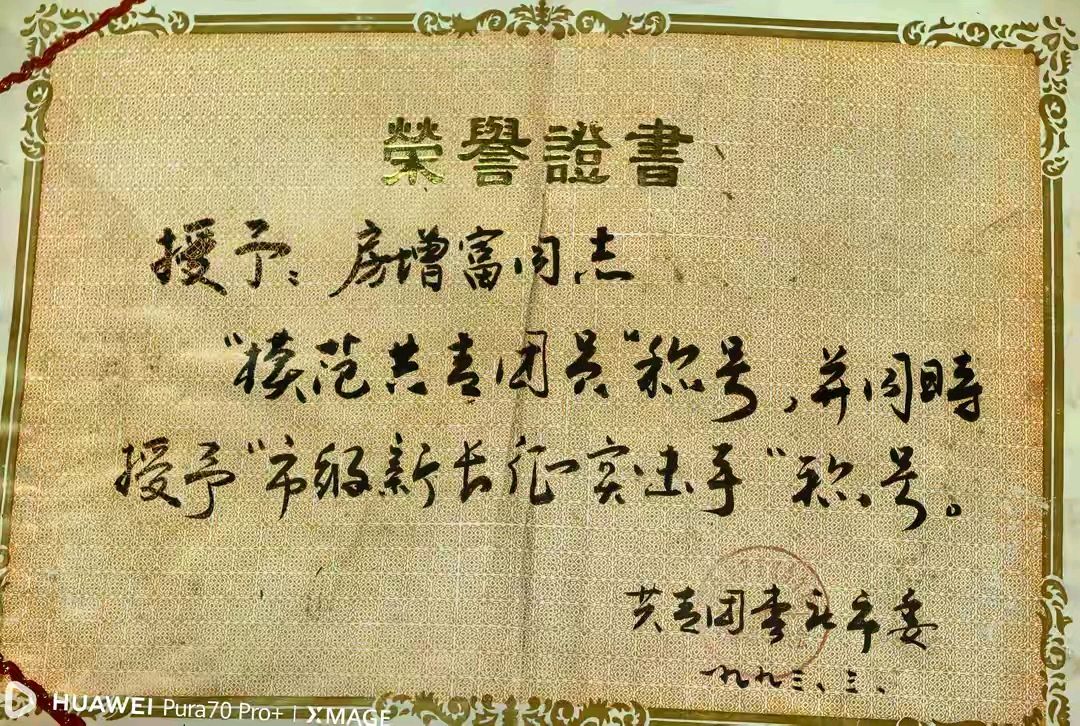 榮譽證書
授予：房增富同志
“模范共青团员”称号，并同時
授予“市级新长征突击手”称号。
共青团枣庄市委
一九九三、三、
HUAWEI Pura70 Pro+ | XMAGE